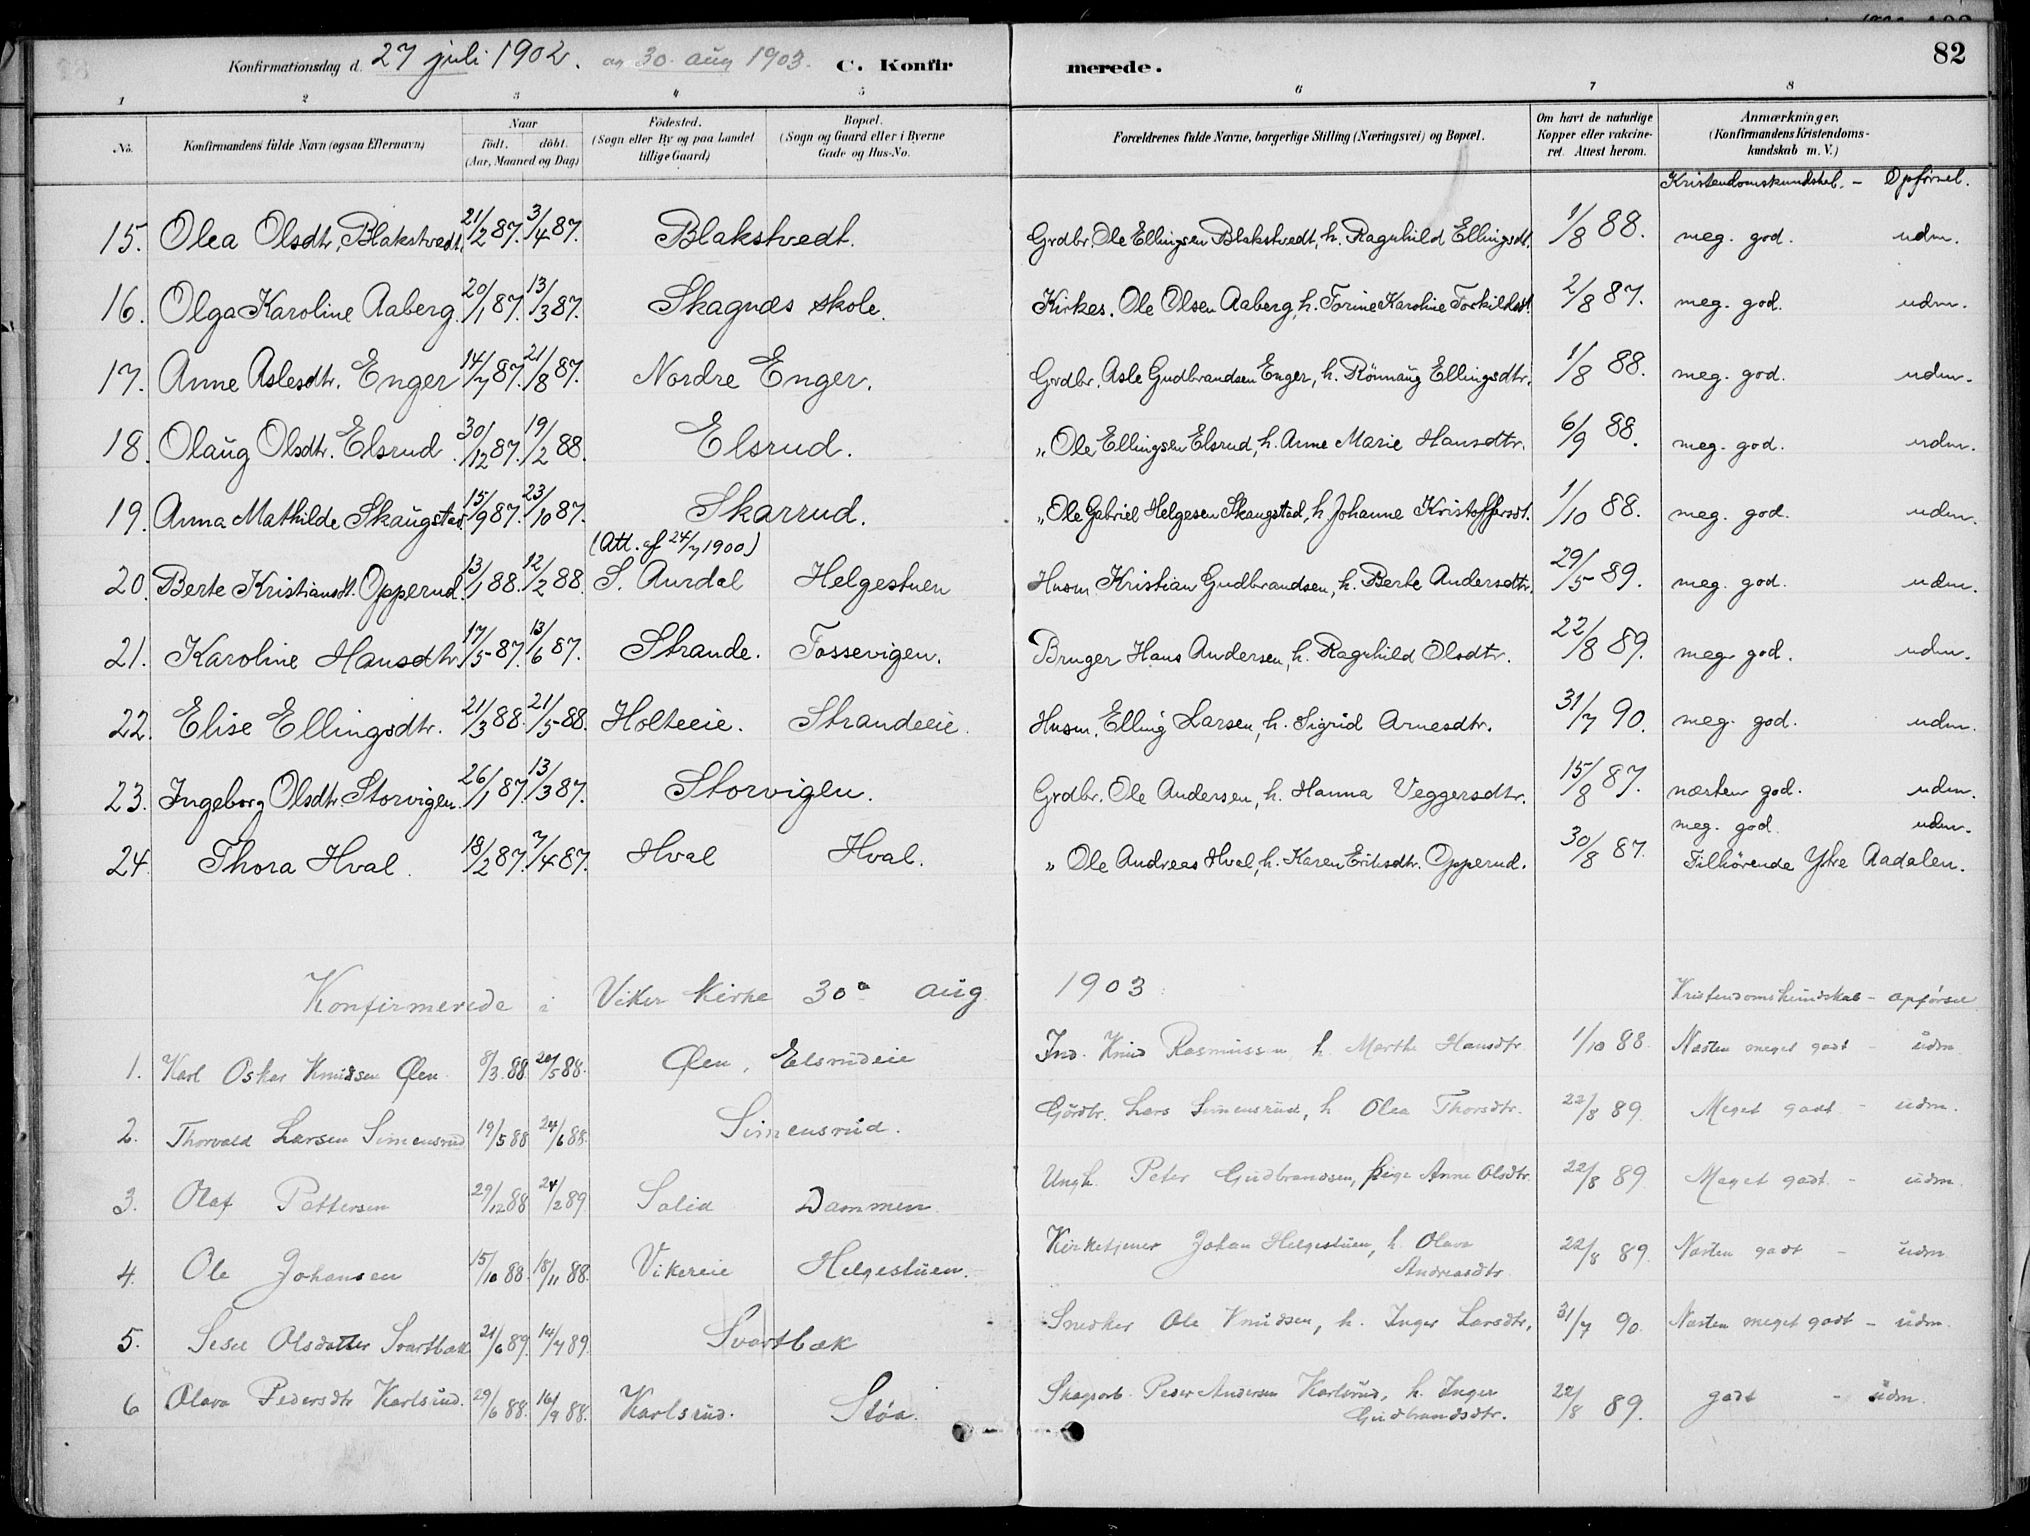 Konfirmationsdag d. 27 juli 1902. og 30. aug 1903. C. Konfirmerede. 82
1 2 3 4 5 6 7 8
No. Konfirmandens fulde Navn (ogsaa Efternavn) Naar födt. döbt. (Aar, Maaned og Dag) Födested. (Sogn eller By og paa Landet tillige Gaard) Bopæl. (Sogn og Gaard eller i Byerne Gade og Hus-No. Forældrenes fulde Navne, borgerlige Stilling (Næringsvei) og Bopæl. Om havt de naturlige Kopper eller vakcineret. Attest herom. Anmærkninger. (Konfirmandens Kristendomskundskab m. V.)
Kristendomskundskab. - Opførsel.
15. Olea Olsdtr. Blakstvedt. 21/2 87. 3/4 87. Blakstvedt. Grdbr. Ole Ellingsen Blakstvedt, h. Ragnhild Ellingsdt. 1/8 88. meg. god. udm.
16. Olga Karoline Aaberg. 20/1 87. 13/3 87. Skagnæs skole. Kirkes. Ole Olsen Aaberg, h. Torine Karoline Torkildsdt. 2/8 87. meg. god. udm.
17. Anne Aslesdtr. Enger 14/7 87. 21/8 87. Nordre Enger. Grdbr. Asle Gudbrandsen Enger, h. Rönnaug Ellingsdtr. 1/8 88. meg. god. udm.
18. Olaug Olsdtr. Elsrud. 30/12 87. 19/2 88. Elsrud. " Ole Ellingsen Elsrud, h. Anne Marie Hansdtr. 6/9 88. meg. god. udm.
19. Anna Mathilde Skaugstad 15/9 87. 23/10 87. Skarrud. " Ole Gabriel Helgesen Skaugstad, h. Johanne Kristoffersdt. 1/10 88. meg. god. udm.
(Att. af 24/7 1900)
20. Berte Kristiansdt. Opperud. 13/1 88. 12/2 88 S. Aurdal Helgestuen Husm Kristian Gudbrandsen, h. Berte Andersdtr. 29/5 89. meg. god. udm.
21. Karoline Hansdtr 17/5 87. 13/6 87. Strande. Fossevigen. Bruger Hans Andersen, h. Ragnhild Olsdtr. 22/8 89. meg. god. udm.
22. Elise Ellingsdtr. 21/3 88. 21/5 88. Holteeie. Strandeeie. Husm. Elling Larsen, h. Sigrid Arnesdtr. 31/7 90. meg. god. udm.
23. Ingeborg Olsdtr. Storvigen. 26/1 87. 13/3 87. Storvigen. Grdbr. Ole Andersen, h. Hanna Veggersdtr. 15/8 87. næsten god. udm.
meg. god. udm.
24. Thora Hval. 18/2 87. 7/4 87. Hval Hval. " Ole Andreas Hval, h. Karen Eriksdtr. Opperud. 30/8 87. Tilhørende Ytre Aadalen.
Konfirmerede i Viker kirke 30te aug. 1903 Kristendomskundskab - opførsel
1. Karl Oskar Knudsen Øen 8/3 88 20/5 88. Øen, Elsrudeie Ind. Knud Rasmussen h. Marthe Hansdtr 1/10 88 Næsten meget godt - udm
2. Thorvald Larsen Simensrud 19/5 88 24/6 88. Simensrud. Gårdbr. Lars Simensrud, h Olea Thorsdtr. 22/8 89. Meget godt - udm.
3. Olaf Pettersen 29/12 88 24/2 89. Solia Dammen Ungk. Peter Gudbrandsen, pige Anne Olsdtr 22/8 89 Meget godt - udm.
4. Ole Johansen 15/10 88. 18/11 88. Vikereie Helgestuen. Kirketjener Johan Helgestuen, h. Olava Andreasdtr 22/8 89 Næsten godt - udm
5. Sesse Olsdatter Svartbæk 21/6 89. 14/7 89. Svartbæk Snedker Ole Knudsen, h. Inger Larsdtr, 31/7 90. Næsten meget godt - udm.
6 Olava Pedersdtr Karlsrud. 29/6 88. 16/9 88. Karlsrud. Støa. Skogsarb. Peder Andersen Karlsrud, h. Inger Gudbrandsdtr. 22/8 89. godt - udm.